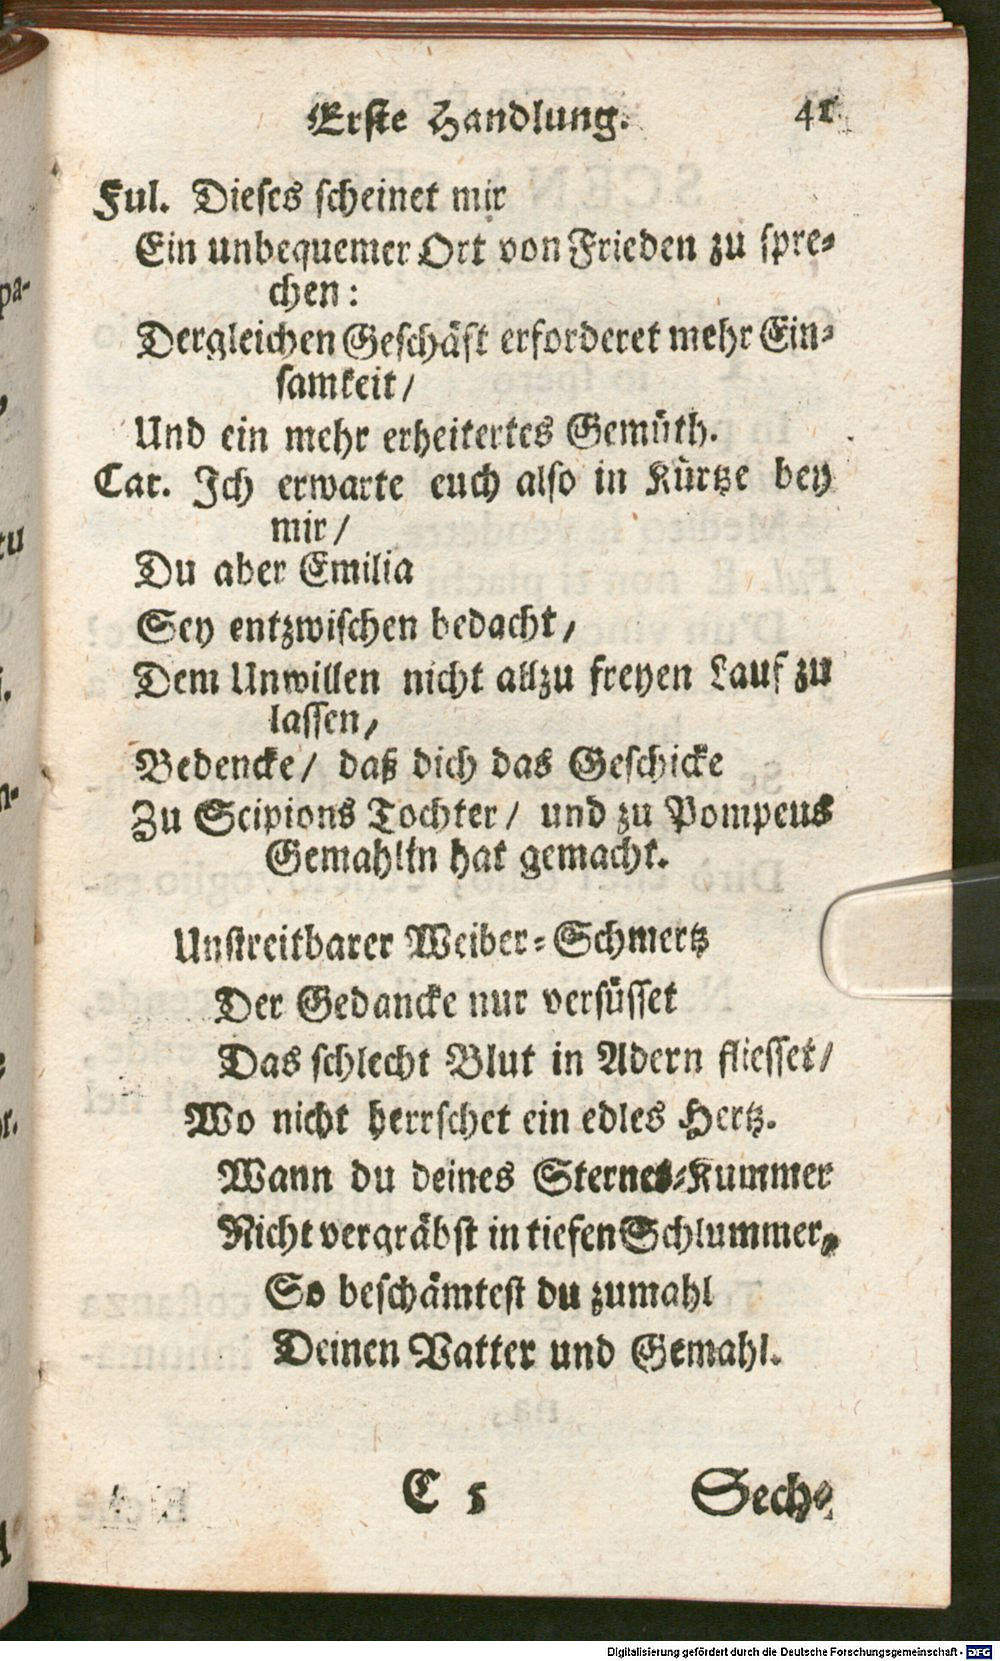 Erste Handlung. 41
Ful. Dieses scheinet mir
Ein unbequemer Ort von Frieden zu spre-
chen:
Dergleichen Geschäft erforderet mehr Ein-
samkeit/
Und ein mehr erheitertes Gemüth.
Cat. Ich erwarte euch also in Kürtze bey
mir/
Du aber Emilia
Sey entzwischen bedacht/
Dem Unwillen nicht allzu freyen Lauf zu
lassen/
Bedencke/ daß dich das Geschicke
Zu Scipions Tochter/ und zu Pompeus
Gemahlin hat gemacht.
Unstreitbarer Weiber-Schmertz
Der Gedancke nur versüsset
Das schlecht Blut in Adern fliesset/
Wo nicht herrschet ein edles Hertz.
Wann du deines Sternes-Kummer
Nicht vergräbst in tiefen Schlummer,
So beschämtest du zumahl
Deinen Vatter und Gemahl.
C 5 Sech-
Digitalisierung gefördert durch die Deutsche Forschungsgemeinschaft - DFG